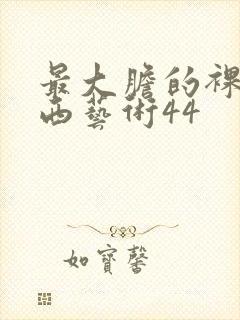 最大膽的裸
西藝術44
如寶馨